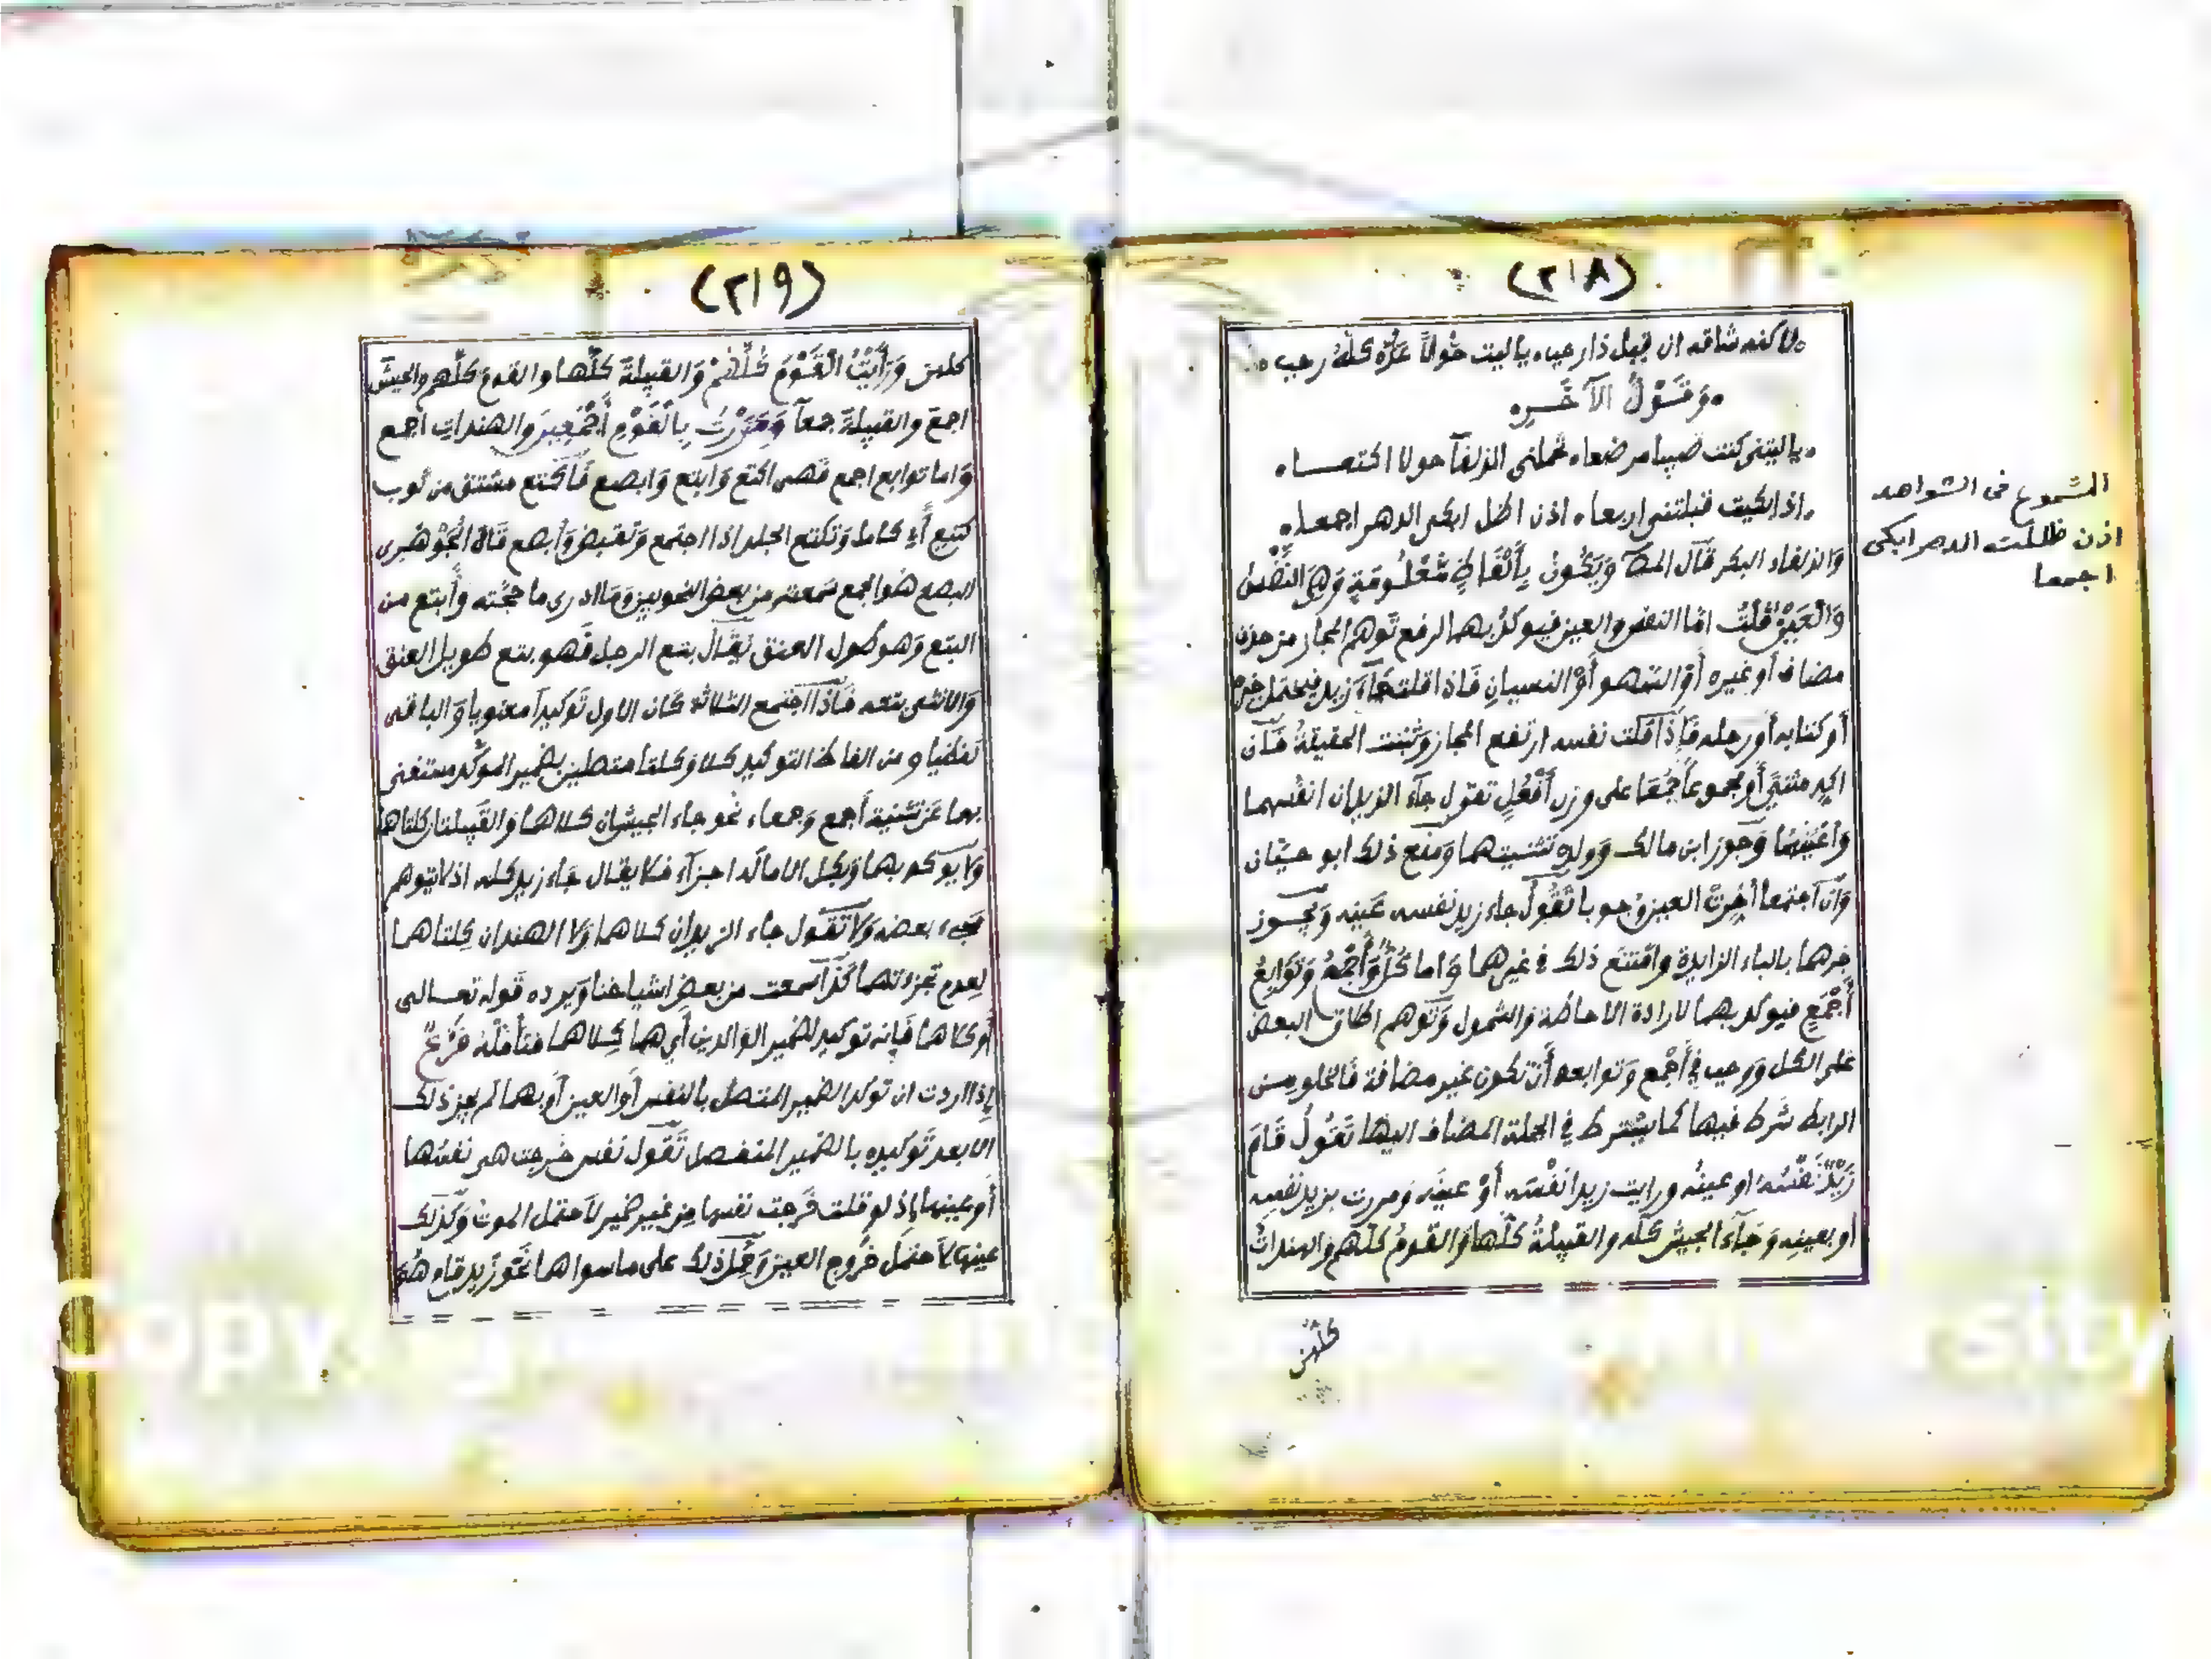 (٢١٨)
لاكنه شاقه ان قيل ذا رجب ياليت حولاً عدّة كلّه رجب
وَقَوْلُ الآخَرِ
ياليتنى كنت صبيا مرضعا تحملنى الذلفآ حولا اكتعا
اذا بكيت قبلتنى اربعا اذن اظل ابكى الدهر اجمعا
وَالذلفاء البكر قَال المصـ وَيَكُونُ بِأَلْفَاظٍ مَعْلُومَةٍ وَهِيَ النَّفْسُ
وَالْعَيْنُ قلتُ امّا النفس والعين فيوكدُ بهما لرفع تَوهم المجاز من حذف
مضاف أو غيره أوْ السهو أوْ النسيانِ فَاذا قلت جَآءَ زيد فيحتمل خبره
أو كتابه أو رحله فَإذَا قلت نفسه ارتفع المجاز وَثبتت الحقيقةُ فَان
اكد مثنىً أو مجموعاً جُمعَا على وزن أَفْعُلٍ تقول جآء الزيدان انفُسهما
وأعْيُنُهما وَجوز ابن مالك وَولده تثنيتهما وَمنع ذلك ابو حيّان
وَان اجتمعا أُخِرَتْ العين وُجوبا تَقُولُ جاء زيد نفسه عينه وَيجوز
جرهما بالباء الزايدة وامتنع ذلك في غيرهما وَاما كُلُّ وَأجْمَعُ وَتَوَابِعُ
أَجْمَعِ فيوكد بهما لارادة الاحاطة وَالشمول وَتَوهم اطلاق البعض
على الكل وَوجب في أَجْمع وَتوابعه أَنْ تكون غير مضافة فَالخلو من
الرابط شَرط فيها كما يشترط في الجملة المضاف اليها تَقُولُ قَامَ
زَيْدٌ نَفْسُهُ او عينُه ورايت زيدا نَفْسَه أوْ عينَه وَمررت بزيد نفسِه
أو بعينِه وَجَآءَ الجيش كلّه والقبيلةُ كلّها وَالقومُ كلّهم والهنداتُ
كلهن
الشموع فى الشواهد
اذن ظللت الدهر ابكى
اجمعا
(٢١٩)
كلهن وَرَأَيْتُ الْقَوْمَ كُلَّهُمْ وَالقبيلةَ كلَّها والقومَ كلَّهم والجيشَ
اجمعَ والقبيلةَ جمعآ وَمَرَرْتُ بِالْقَوْمِ أَجْمَعِينَ والهنداتِ اجمع
وَاما توابع اجمع فَهى اكتع وَابتع وَابصع فَاكتع مشتق من ثوب
كتيع أَي كامل وَتكتع الجلد اذا اجتمع وَتقبض وَأبصع قَالَ الْجَوْهَرى
البصع هُو الجمع سَمعته من بعض النحويين وَمَا ادرى ما حجّته وأَبتع من
البتع وَهو طول العنق يُقالُ بتع الرجل فَهو بتع طويل العنق
وَالانثى بتعه فَاذَا اجتمع الثلاثه كَان الاول تَوكيداً معنويا وَالباقى
لفظيا ومن الفاظ التوكيد كلا وَكلتا متصلين بضمير الموكّد مستغنى
بهما عَن تثنية أَجمع وَجمعاء نحو جاء الجيشان كلاهما وَالقَبيلتان كلتاهما
وَلا يوَكد بهما وَبكل الا ما لَه اجزآء فَلا يقال جَاء زيد كله اذ لا يتوهم
مَجيء بعضه وَلا تَقول جاء الزيدان كلاهما وَلا الهندان كِلتاهما
لِعدم تجزءتهما كَذَا سمعت من بعضِ اشياخنا وَيرده قَوله تعالى
أَو كلاهما فَإنه توكيد لضمير الوَالدين أي هما كِلاهما فتأمَلْهُ فَرْعٌ
إذا اردت ان توكد الضمير المتصل بالنفس أَو العين أَو بهما لم يجز ذلك
الا بعد تَوكيده بالضمير المنفصل تَقول نفس خرجت هى نفسُها
أَو عينها إذ لو قلت خَرجت نفسها مِن غير ضمير لاَحتمل الموت وَكذلك
عينها لاَحتمَل خُروج العين وَحُمِلَ ذلك على ما سواهما نَحو زيد قام هُوَ